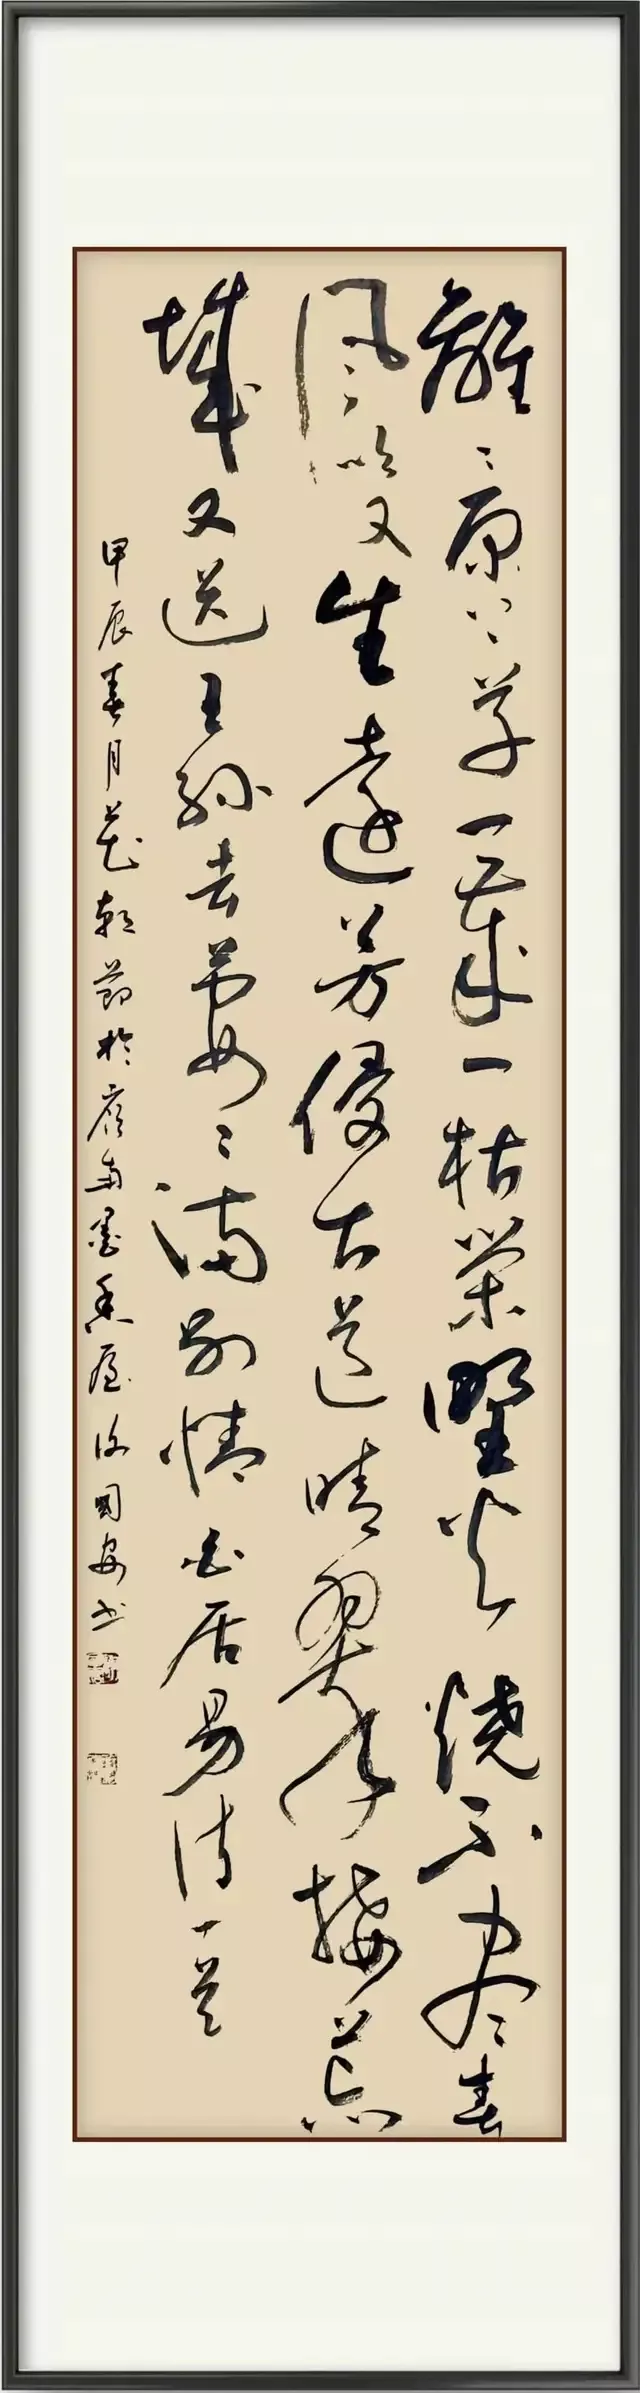 離〻原上草一歲一枯榮野火燒不尽春
風吹又生遠芳侵古道晴翠接荒
城又送王孫去萋〻滿別情白居易詩一首
甲辰春月花朝節於南墨香屋許國安书